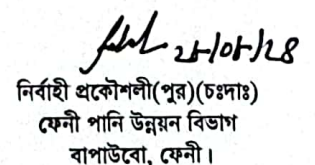 নির্বাহী প্রকৌশলী(পুর)(চঃদাঃ)
ফেনী পানি উন্নয়ন বিভাগ
বাপাউবো, ফেনী।